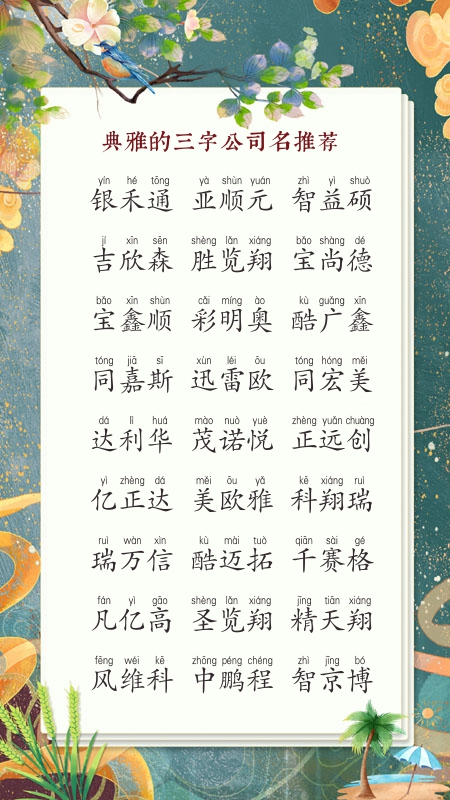 典雅的三字公司名推荐
yín hé tōng yà shùn yuán zhì yì shuò
银禾通 亚顺元 智益硕
jí xīn sēn shèng lǎn xiáng bǎo shàng dé
吉欣森 胜览翔 宝尚德
bǎo xīn shùn cǎi míng ào kù guǎng xīn
宝鑫顺 彩明奥 酷广鑫
tóng jiā sī xùn léi ōu tóng hóng měi
同嘉斯 迅雷欧 同宏美
dá lì huá mào nuò yuè zhèng yuǎn chuàng
达利华 茂诺悦 正远创
yì zhèng dá měi ōu yǎ kē xiáng ruì
亿正达 美欧雅 科翔瑞
ruì wàn xìn kù mài tuò qiān sài gé
瑞万信 酷迈拓 千赛格
fán yì gāo shèng lǎn xiáng jīng tiān xiáng
凡亿高 圣览翔 精天翔
fēng wéi kē zhōng péng chéng zhì jīng bó
风维科 中鹏程 智京博